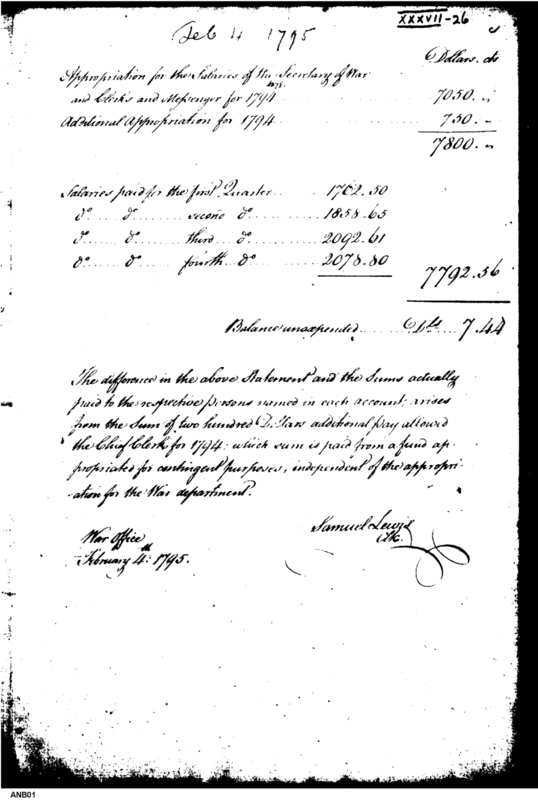 XXXVII-26
Feb 4 1795
Dollars. cts
Appropriation for the Salaries of the Secretary of War
and Clerks and Messenger for 1794 7050. "
Additional Appropriation for 1794 750. "
7800. "
Salaries paid for the first Quarter 1762.50
do do second do 1858.65
do do third do 2092.61
do do fourth do 2078.80
7792.56
Balance unexpended Dlls 7.44
The difference in the above Statement and the Sums actually
paid to the respective persons named in each account, arises
from the Sum of two hundred Dollars additional pay allowed
the Chief Clerk for 1794. which sum is paid from a fund ap-
propriated for contingent purposes, independent of the appropri-
-ation for the War department.
War Office
February 4th: 1795.
Samuel Lewis
Clk.
ANB01